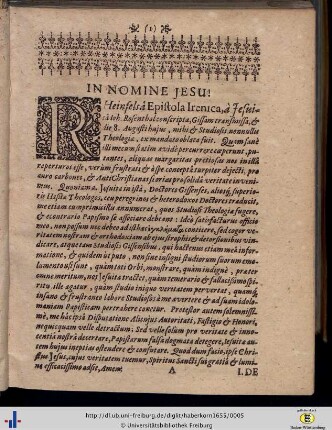 (1)
IN NOMINE JESU!
Heinfelsâ Epistola Irenica, à Jesuita
Joh. Rosenthal conscripta, Gissam transmissa,
die 8. Augusti hujus, mihi & Studiosis nonnullis
Theologiæ, ex mandato oblata fuit. Quam sanè
illi mecum statim avidè percurrere cœperunt, putantes,
aliquas margaritas pretiosas nos in illâ
reperturos esse, verùm frustratè & esse cœpto turpiter dejecti, pro
auro carbones, & AntiChristianas sorias pro solidâ veritate invenimus.
Quoniam a. Jesuita in istâ, Doctores Gissenses, aliosq; superioris
Hassiæ Theologos, ceu peregrinos & heterodoxos Doctores traducit,
me etiam comprimis illis annumerat, quos Studiosi Theologiæ fugere,
& econtrario Papismo se associare debeant: Ideò satisfacturus officio
meo, non possum nec debeo conticere, sed coràm vocationis
meæ auditorium ab ejus strophis & detorsionibus vindicare,
atque tam Studiosis Gissensibus, qui hactenus etiam meâ informatione,
& quidem ut puto, non sine insigni studiorum suorum emolumento
usi sunt, quàm toti Orbi, monstrare, quàm indignè, præter
omne meritum, nos Jesuita tractet, quàm temerario & fallacissimo spiritu
ille agatur, quàm studio iniquo veritatem pervertat, quamq;
insano & frustraneo labore Studiosos à me avertere & ad suam idolomaniam
Papisticam pertrahere conetur. Protestor autem solemnissimè,
me hâc ipsâ Disputatione Alicujus Autoritati, Fastigio & Honori,
nequicquam velle detractum: Sed velle solùm pro veritate & innocentia
nostra decertare, Papistarum falsa dogmata detegere, Jesuitæ autem
hujus ineptias ostendere & confutare. Quod dum facio, ipse Christus
Jesus, cujus veritatem tuemur, Spiritus Sancti sui gratiâ & lumine
efficacissimo adsit, Amen!
A
I. DE
http://dl.ub.uni-freiburg.de/diglit/haberkorn1655/0005
© Universitätsbibliothek Freiburg